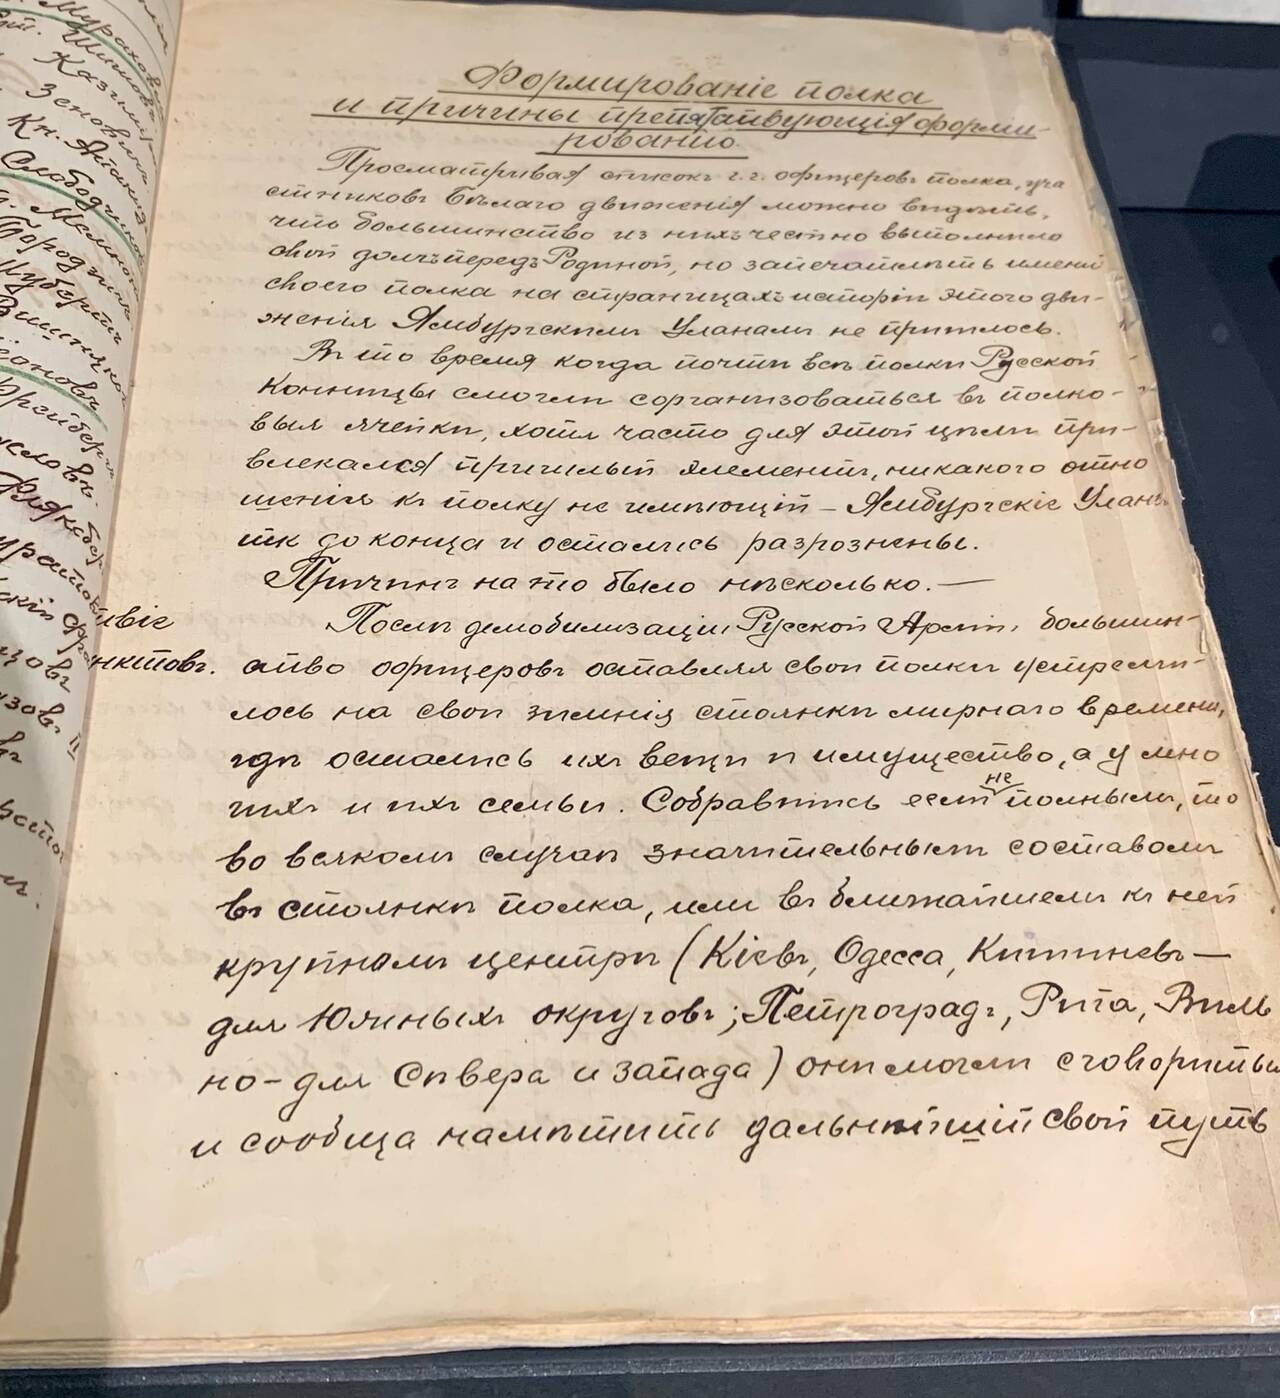 Мураховс
Шишовъ
Казимір
Зеновичъ
Слободчиков
Бородичъ
Шубертъ
Вишняков
Фрейбергъ
Формированіе полка
и причины препятствующія форми-
рованію.
Просматривая списокъ г.г. офицеровъ полка, уча
стниковъ Бѣлаго движенія можно видѣть,
что большинство изъ нихъ честно выполнило
свой долгъ передъ Родиной, но запечатлѣть имени
своего полка на страницахъ исторіи этого дви-
женія Ямбургскимъ Уланамъ не пришлось.
Въ то время когда почти всѣ полки Русской
Конницы смогли сорганизоваться въ полко-
выя ячейки, хотя часто для этой цѣли при-
влекался пришлый элементъ, никакого отно
шенія къ полку не имѣющій – Ямбургскіе Уланы
такъ до конца и остались разрознены.
Причинъ на то было нѣсколько. —
Послѣ демобилизаціи Русской Арміи, большин-
нктовъ. ство офицеровъ оставляя свои полки устреми-
лось на свои зимнія стоянки мирнаго времени,
гдѣ остались ихъ вещи и имущество, а у мно
гихъ и ихъ семьи. Собравшись если не полнымъ, то
во всякомъ случаѣ значительнымъ составомъ
въ стоянкѣ полка, или въ ближайшемъ къ ней
крупномъ центрѣ (Кіевъ, Одесса, Кишиневъ —
для Южныхъ округовъ; Петроградъ, Рига, Виль
но – для Сѣвера и запада) они могли сговориться
и сообща намѣтить дальнѣйшій свой путь